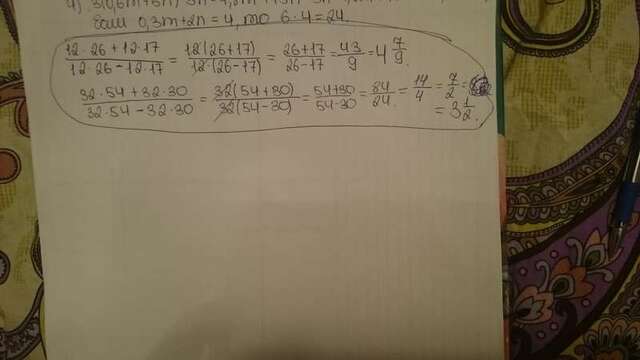 Если 0,3m+2n=4, то 6·4=24.
12·26+12·17 / 12·26-12·17 = 12(26+17) / 12·(26-17) = 26+17 / 26-17 = 43/9 = 4 7/9.
32·54+32·30 / 32·54-32·30 = 32(54+30) / 32(54-30) = 54+30 / 54-30 = 84/24 = 14/4 = 7/2 =
= 3 1/2.